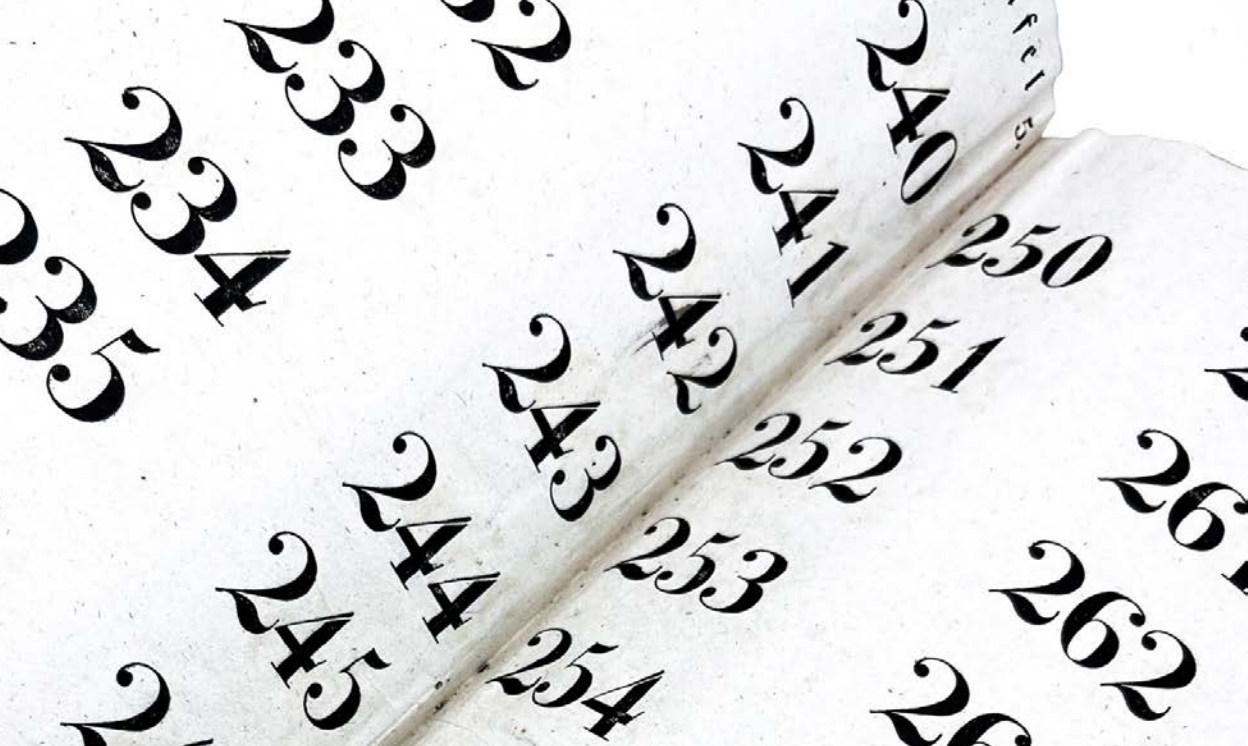 233
234
235
240
241
242
243
244
245
250
251
252
253
254
262